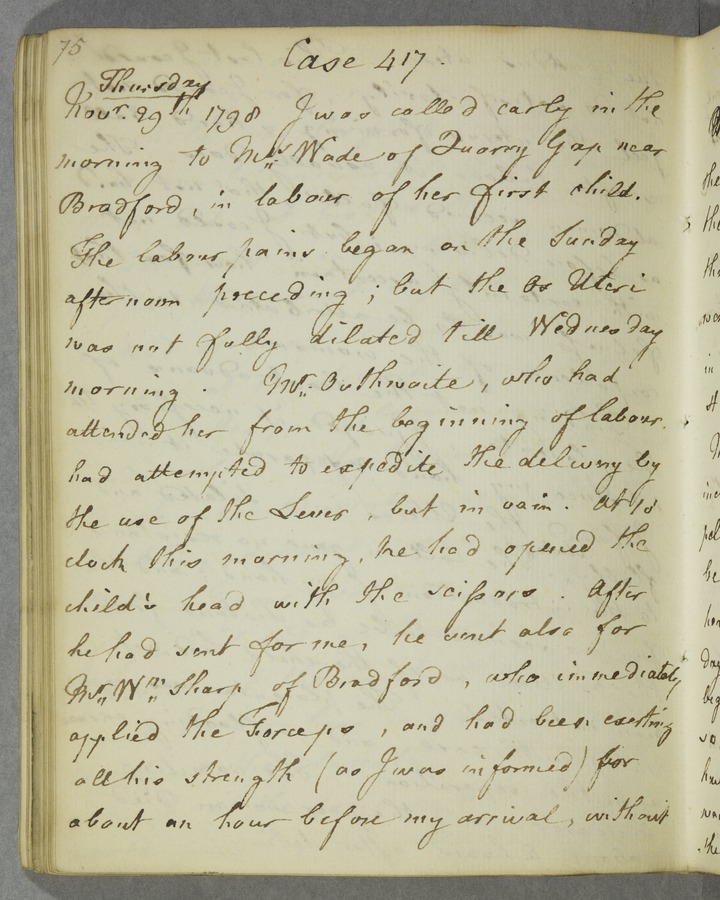 75
Case 417.
Thursday
Novr. 29th 1798 I was called early in the
morning to Mrs Wade of Quarry Gap near
Bradford, in labour of her first child.
The labour pains began on the Sunday
afternoon preceding; but the Os Uteri
was not fully dilated till Wednesday
morning. Mr. Outhwaite, who had
attended her from the beginning of labour,
had attempted to expedite the delivery by
the use of the Lever, but in vain. At
clock this morning, he had opened the
child's head with the scissors. After
he had sent for me, he sent also for
Mr. Wm. Sharp of Bradford, who immediately
applied the Forceps, and had been exerting
all his strength (as I was informed) for
about an hour before my arrival, without